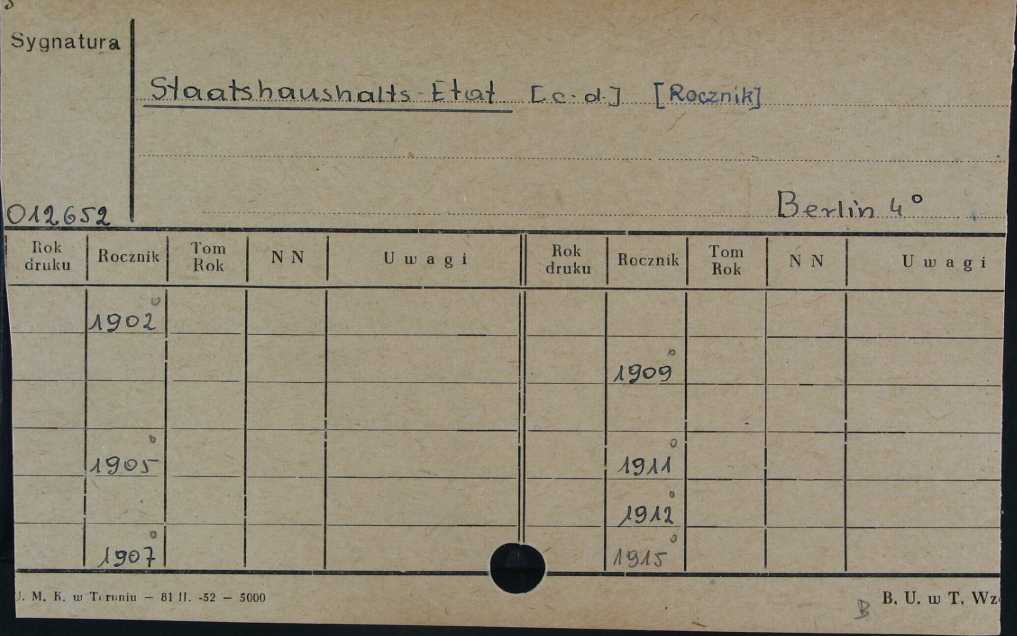 Sygnatura
Staatshaushalts-Etat [c.d.] [Rocznik]
012652
Berlin 4°
Rok druku Rocznik Tom Rok N N Uwagi Rok druku Rocznik Tom Rok N N Uwagi
1902°
1909°
1905° 1911°
1912°
1907° 1915°
U. M. K. w Toruniu — 81 II. -52 — 5000
B
B. U. w T. Wz